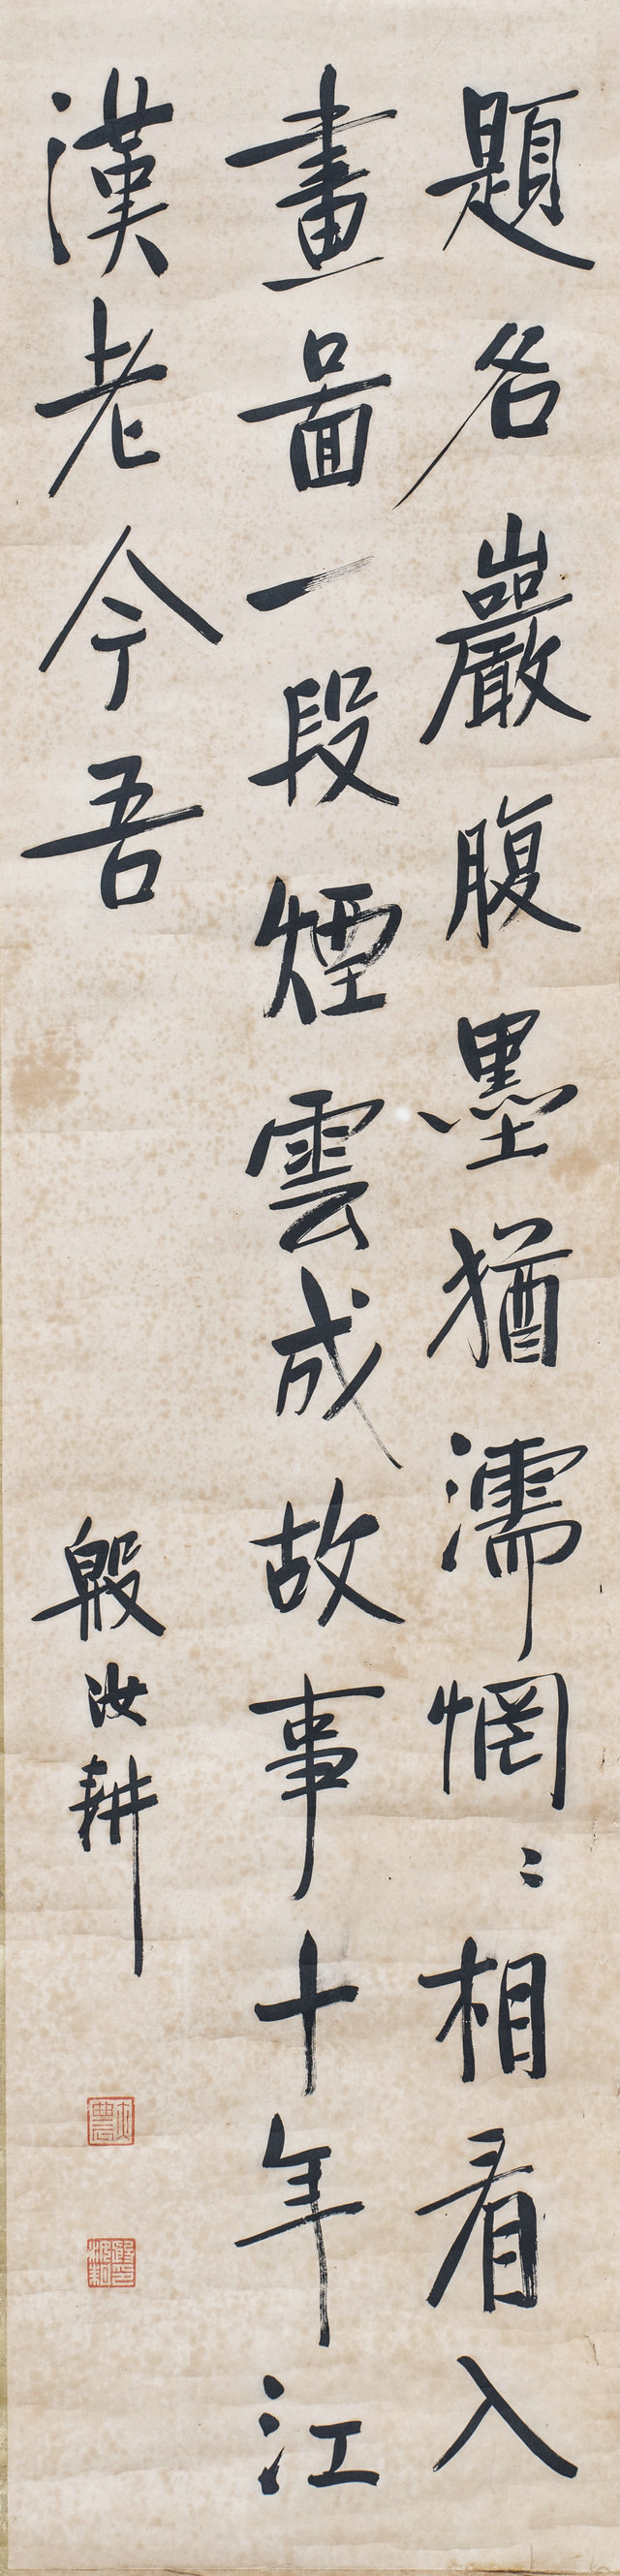 題名巖腹墨猶濡惘〻相看入
畫啚一段煙雲成故事十年江
漢老今吾
殷汝耕